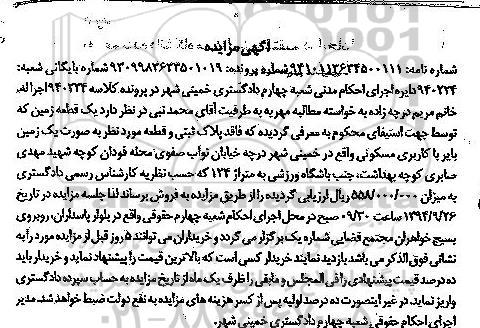 آگهی مزایده
شماره نامه: ۹۴۱۰۱۱۳۶۳۴۵۰۰۱۱۱ شماره پرونده: ۹۳۰۹۹۸۳۶۳۴۵۰۱۰۱۹ شماره بایگانی شعبه:
۹۴۰۲۳۴ دایره اجرای احکام مدنی شعبه چهارم دادگستری خمینی شهر در پرونده کلاسه ۹۴۰۲۳۴ اجرا له
خانم مریم درچه زاده به خواسته مطالبه مهریه به طرفیت آقای محمد تبی در نظر دارد یک قطعه زمین که
توسط جهت استیفای محکوم به معرفی گردیده که فاقد پلاک ثبتی و قطعه مورد نظر به صورت یک زمین
بایر با کاربری مسکونی واقع در خمینی شهر درچه خیابان نواب صفوی محله فودان کوچه شهید مهدی
صابری کوچه بهداشت، جنب باشگاه ورزشی به متراژ ۱۲۴ که حسب نظریه کارشناس رسمی دادگستری
به میزان ۵۵۸/۰۰۰/۰۰۰ ریال ارزیابی گردیده را از طریق مزایده به فروش برساند لذا جلسه مزایده در تاریخ
۱۳۹۴/۹/۲۶ ساعت ۰۹/۳۰ صبح در محل اجرای احکام شعبه چهارم حقوقی واقع در بلوار پاسداران، روبروی
بسیج خواهران مجتمع قضایی شماره یک برگزار می گردد و خریداران می توانند ۵ روز قبل از مزایده مورد را به
نشانی فوق الذکر می باشد بازدید نمایند خریدار کسی است که بالاترین قیمت را پیشنهاد نماید و خریدار باید
ده درصد قیمت پیشنهادی را فی المجلس و مابقی را ظرف یک ماه از تاریخ مزایده به حساب سپرده دادگستری
واریز نماید. در غیر اینصورت ده درصد اولیه پس از کسر هزینه های مزایده به نفع دولت ضبط خواهد شد. مدیر
اجرای احکام حقوقی شعبه چهارم دادگستری خمینی شهر.